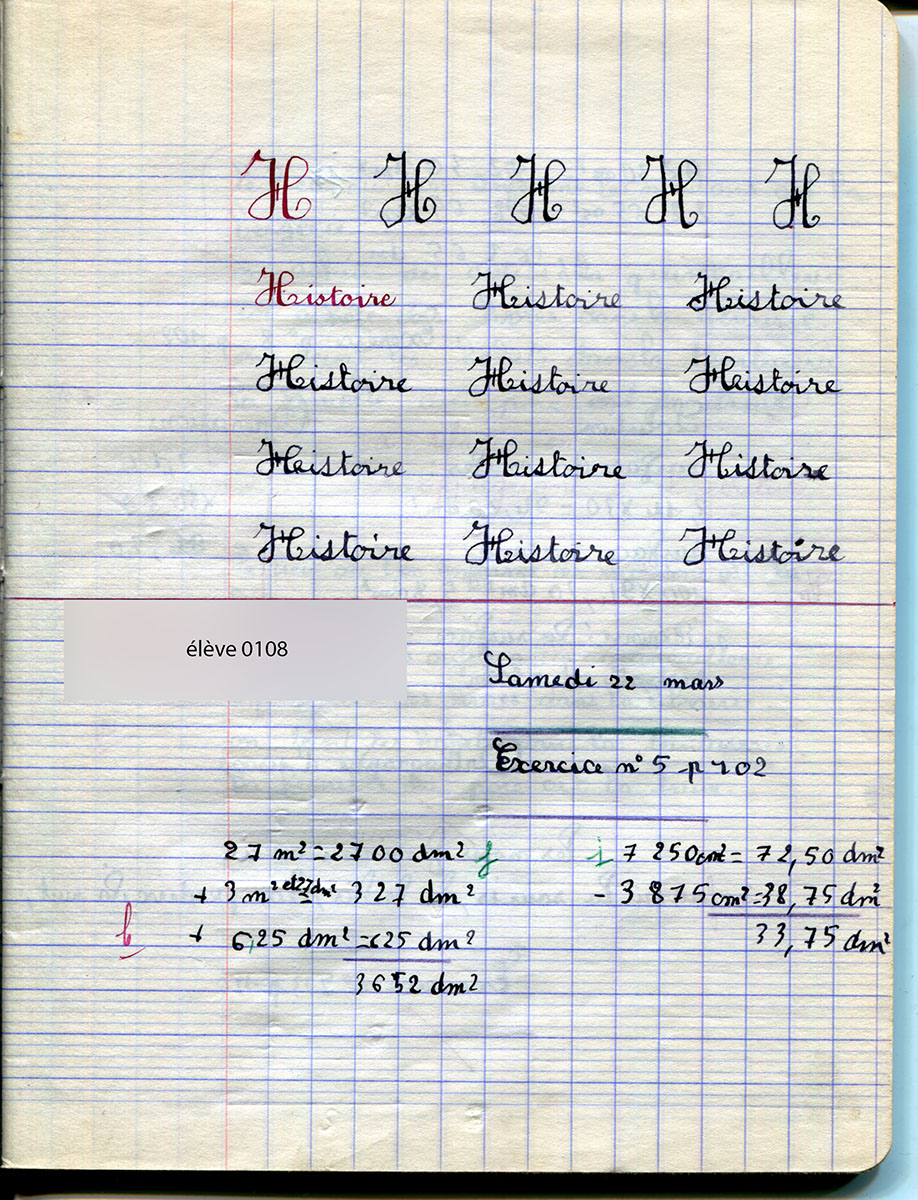 H H H H H
Histoire Histoire Histoire
Histoire Histoire Histoire
Histoire Histoire Histoire
Histoire Histoire Histoire
élève 0108
Samedi 22 mars
Exercice n° 5 p 102
27 m² = 2700 dm² j
+ 3 m² et 27 dm² = 327 dm²
b + 6,25 dm² = 625 dm²
3652 dm²
j 7 250 cm² = 72,50 dm²
- 3 875 cm² = 38,75 dm²
33,75 dm²